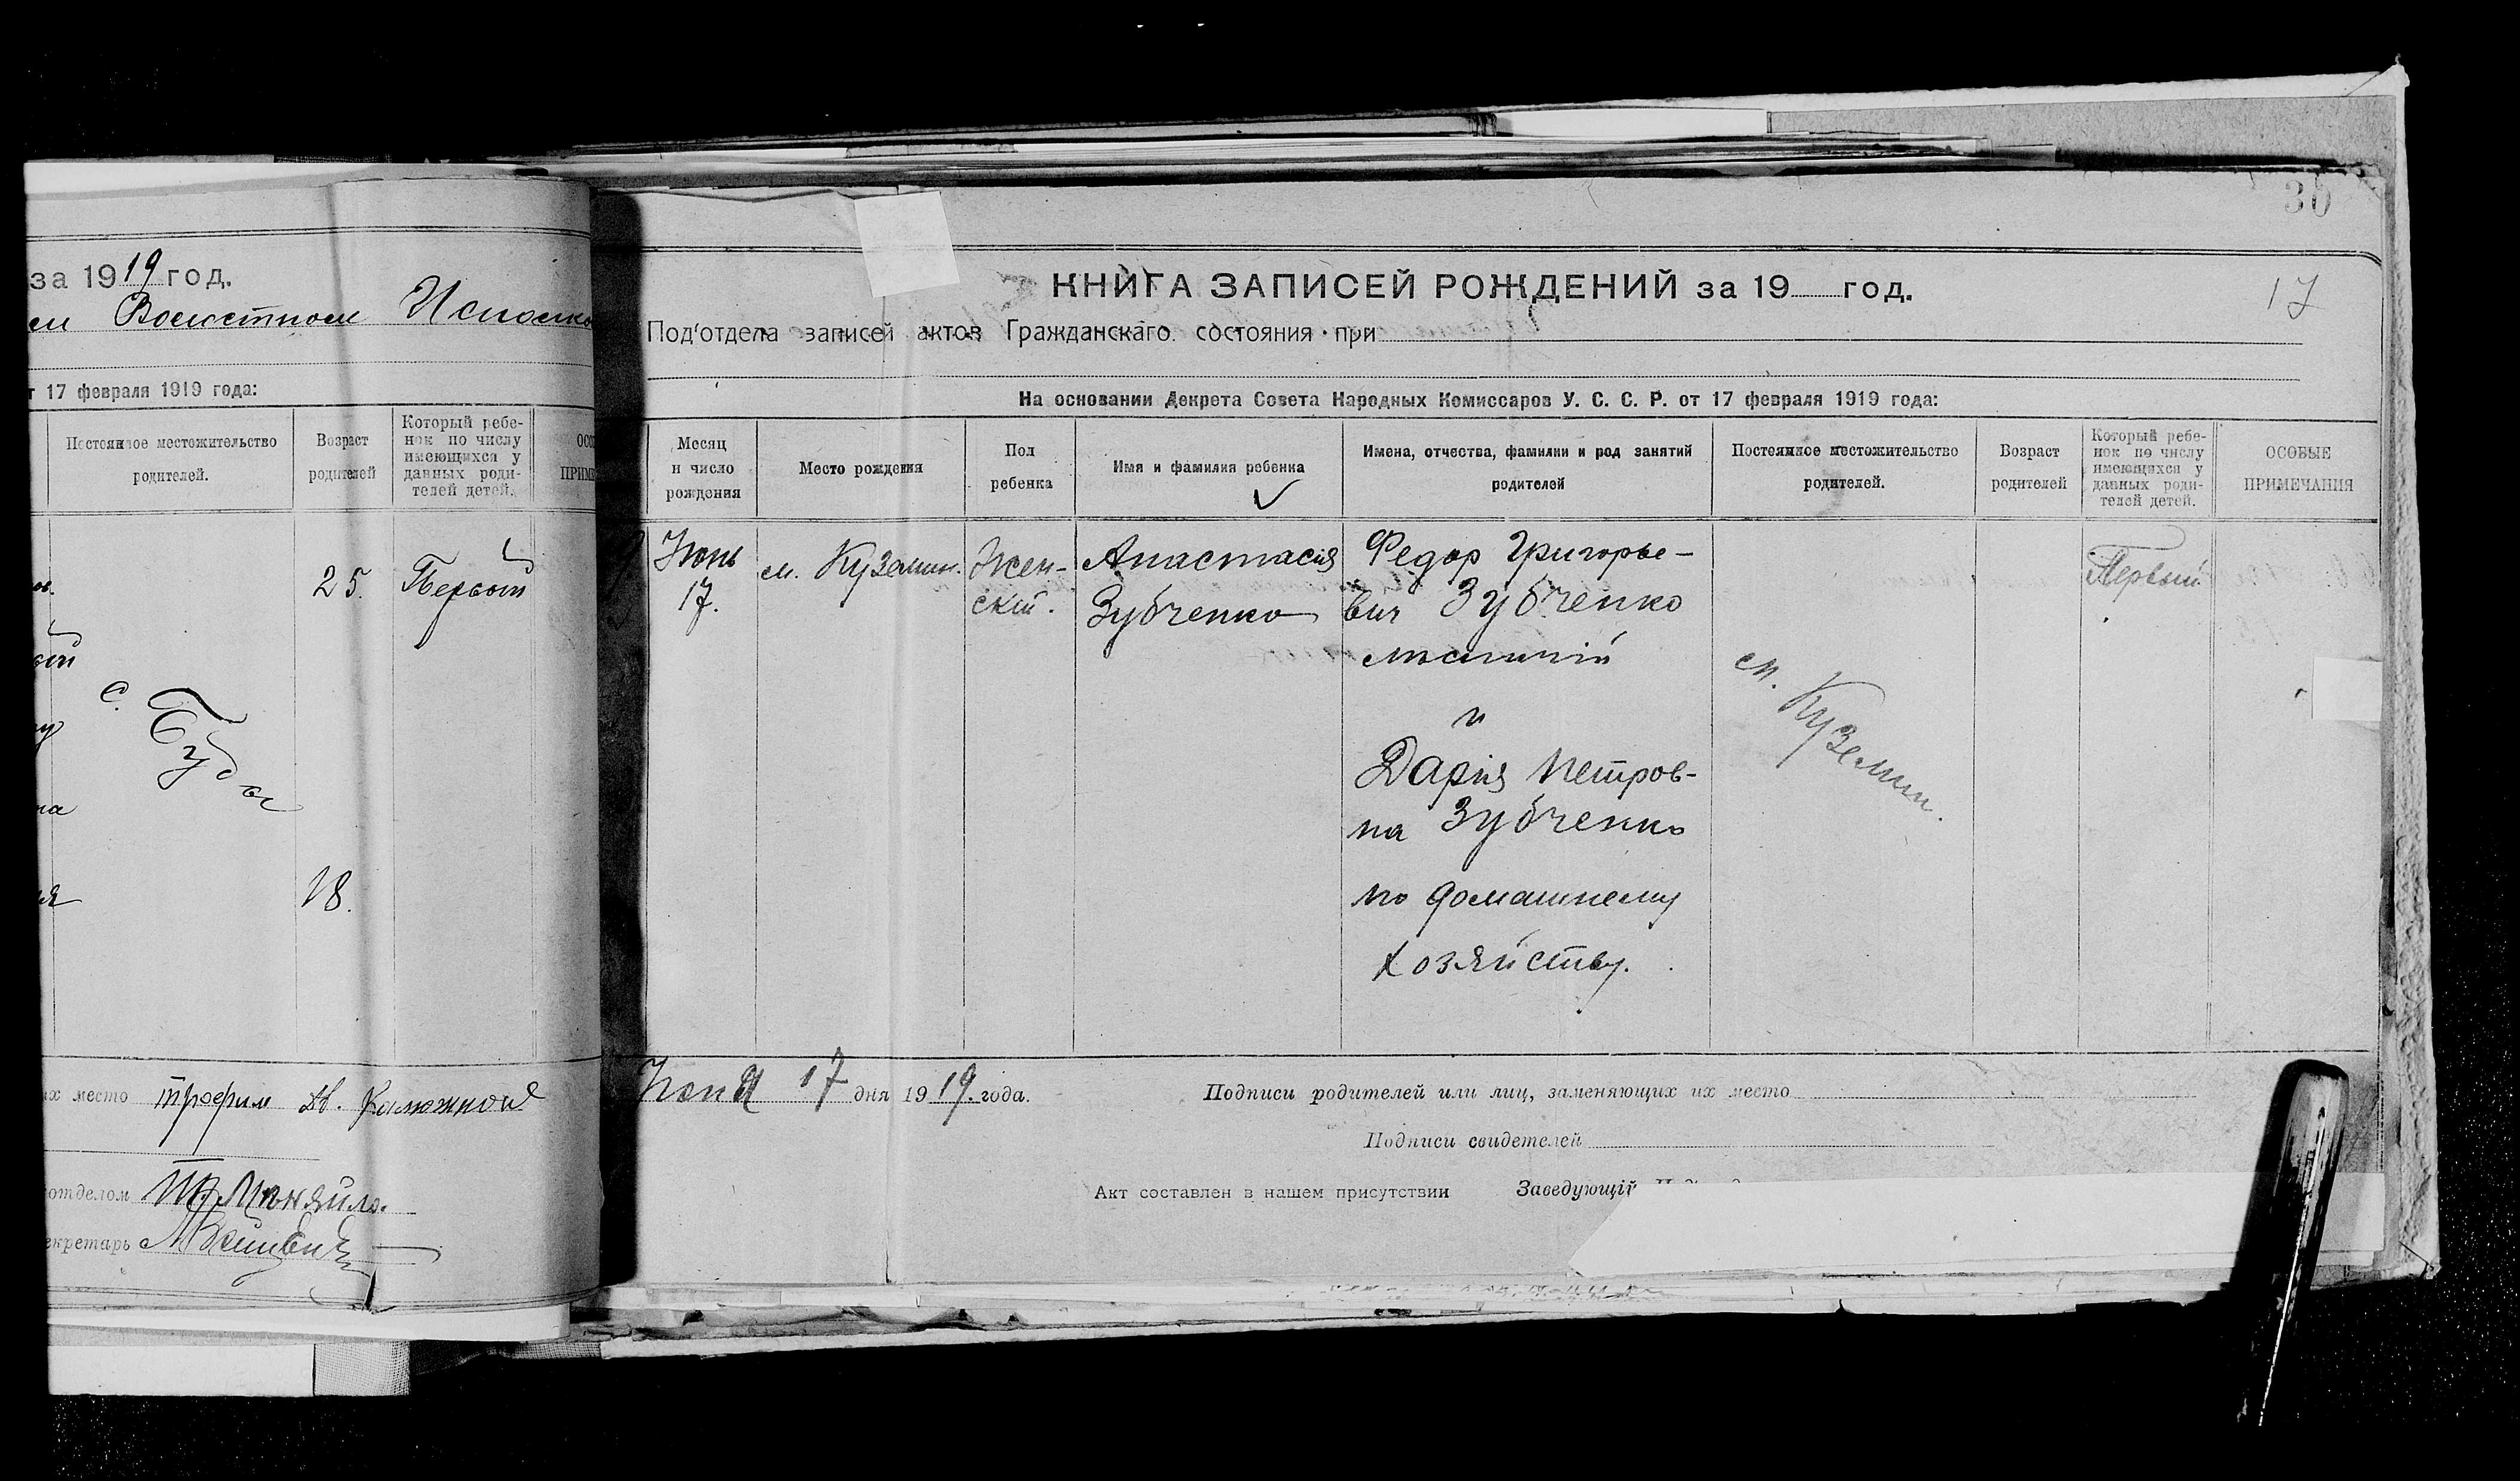 за 1919 год.
Волостном
т 17 февраля 1919 года:
Постоянное местожительство
родителей.
Возраст
родителей
Который ребе-
нок по числу
имеющихся у
данных роди-
телей детей.
25.
Первый
с. Буды
18.
их место Трофим
отделом
екретарь
30
17
КНИГА ЗАПИСЕЙ РОЖДЕНИЙ за 19 год.
Под'отдела записей актов Гражданскаго состояния при
На основании Декрета Совета Народных Комиссаров У. С. С. Р. от 17 февраля 1919 года:
Месяц
и число
рождения
Место рождения
Пол
ребенка
Имя и фамилия ребенка
Имена, отчества, фамилии и род занятий
родителей
Постоянное местожительство
родителей.
Возраст
родителей
Который ребе-
нок по числу
имеющихся у
данных роди-
телей детей.
ОСОБЫЕ
ПРИМЕЧАНИЯ
Июнь
17.
м. Куземин.
Жен-
скій.
Анастасія
Зубченко
Федор Григорье-
вич Зубченко
и
Дарія Петров-
на Зубченко
по домашнему
хозяйству.
м. Куземин.
Первый
Июня 17 дня 1919. года.
Подписи родителей или лиц, заменяющих их место
Подписи свидетелей
Акт составлен в нашем присутствии Заведующій